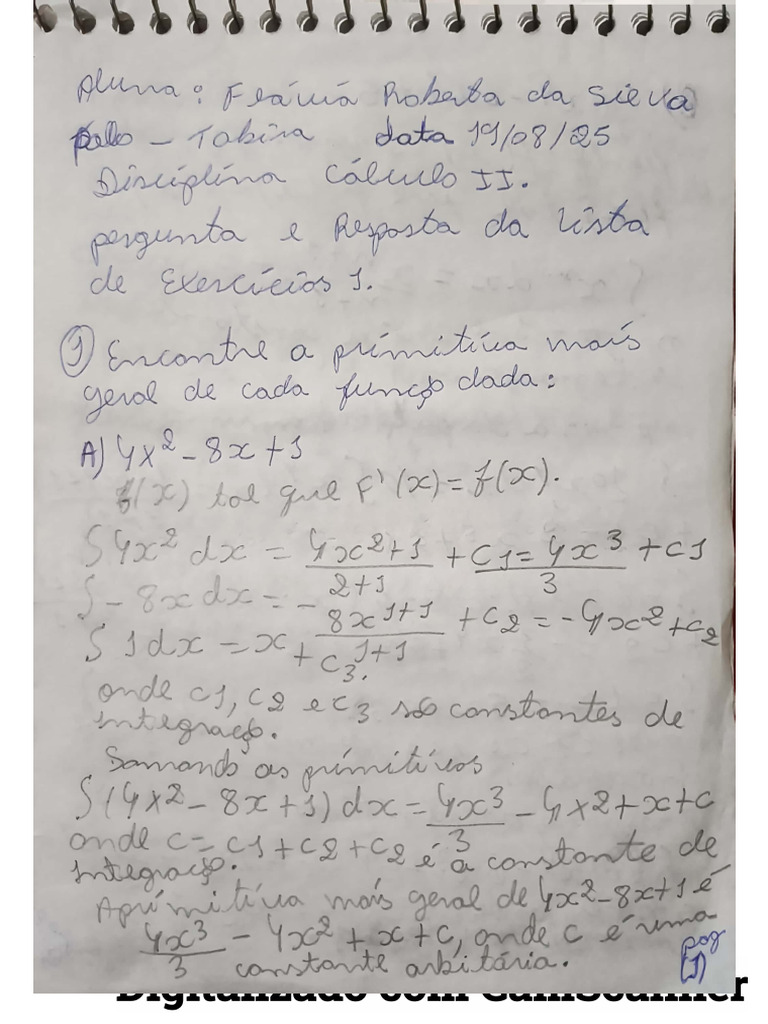 Aluna: Flávia Roberta da Silva
polo - Tabira data 19/08/25
Disciplina Cálculo II.
pergunta e Resposta da Lista
de Exercícios 1.
① Encontre a primitiva mais
geral de cada função dada:
A) 4x² - 8x + 1
f(x) tal que F'(x) = f(x).
∫ 4x² dx = 4x^{2+1}/(2+1) + C1 = 4x³/3 + C1
∫ - 8x dx = - 8x^{1+1}/(1+1) + C2 = - 4x² + C2
∫ 1 dx = x + C3.
onde C1, C2 e C3 são constantes de
integração.
Somando as primitivas
∫ (4x² - 8x + 1) dx = 4x³/3 - 4x2 + x + C
onde C = C1 + C2 + C2 é a constante de
integração.
A primitiva mais geral de 4x² - 8x + 1 é
4x³/3 - 4x² + x + C, onde C é uma
constante arbitária.
pag
(1)
Digitalizado com CamScanner